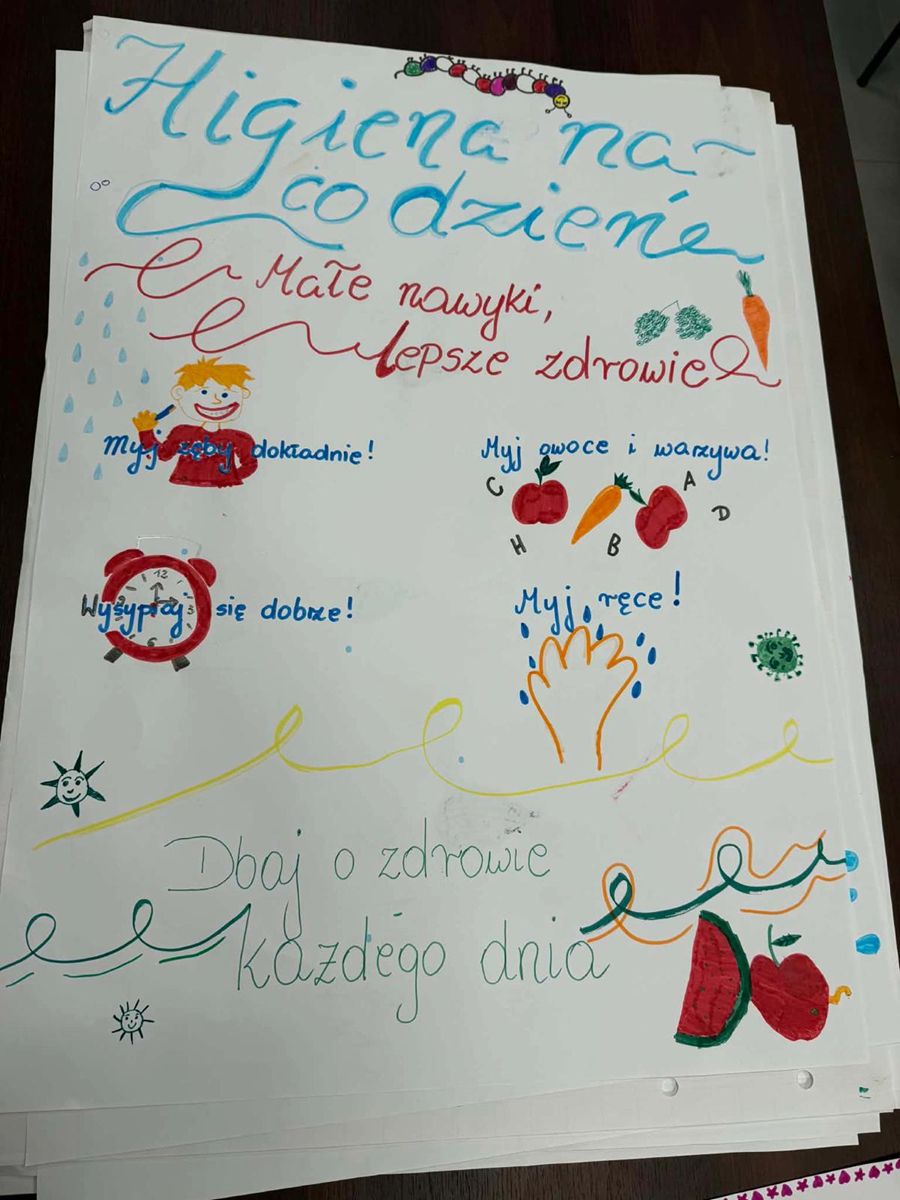 Higiena na
co dzień
Małe nawyki,
lepsze zdrowie
Myj zęby dokładnie!
Myj owoce i warzywa!
C
A
D
H
B
12
3
6
Wysypiaj się dobrze!
Myj ręce!
Dbaj o zdrowie
każdego dnia